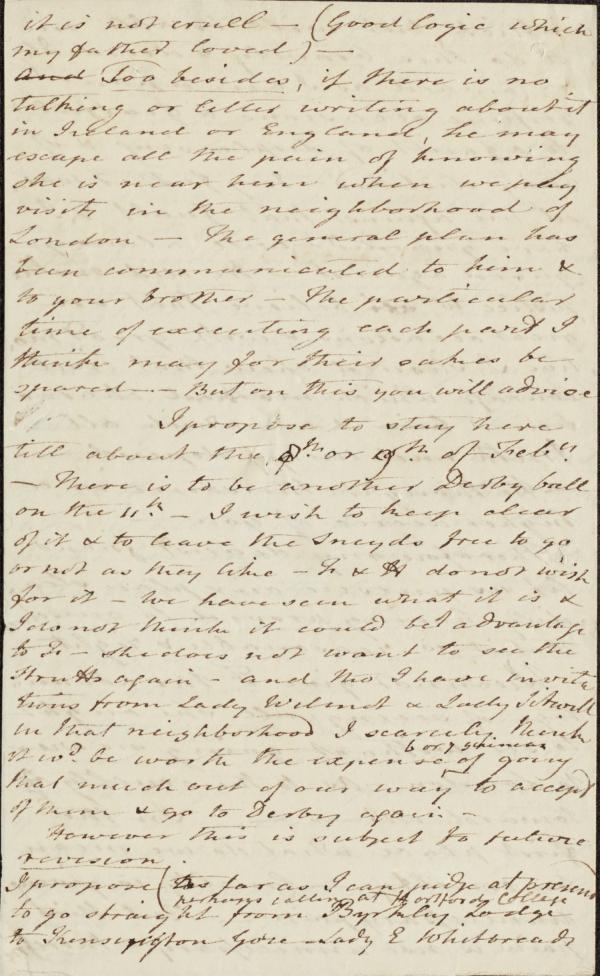 it is not cruel — (Good logic which
my father loved) —
and Too besides, if there is no
talking or letter writing about it
in Ireland or England, he may
escape all the pain of knowing
she is near him when we pay
visits in the neighborhood of
London — The general plan has
been communicated to him &
to your brother — The particular
time of executing each part I
think may for their sakes be
spared — But on this you will advise
I propose to stay here
till about the 9th or th of Feby
— There is to be another Derby ball
on the 11th — I wish to keep clear
of it & to leave the Sneyds free to go
or not as they like — F & H do not wish
for it — we have seen what it is &
I do not think it could be advantage
to F — she does not want to see the
Strutts again — and tho I have invita
tions from Lady Wilmot & Lady Sitwell
in that neighborhood I scarcely think
it wd. be worth the expense of 6 or 7 guineas going
that much out of our way to accept
of them & go to Derby again —
However this is subject to future
revision.
I propose (as far as I can judge at present
perhaps calling at Hertford College
to go straight from Byrkley Lodge
to Kensington Gore Lady E Whitbreads